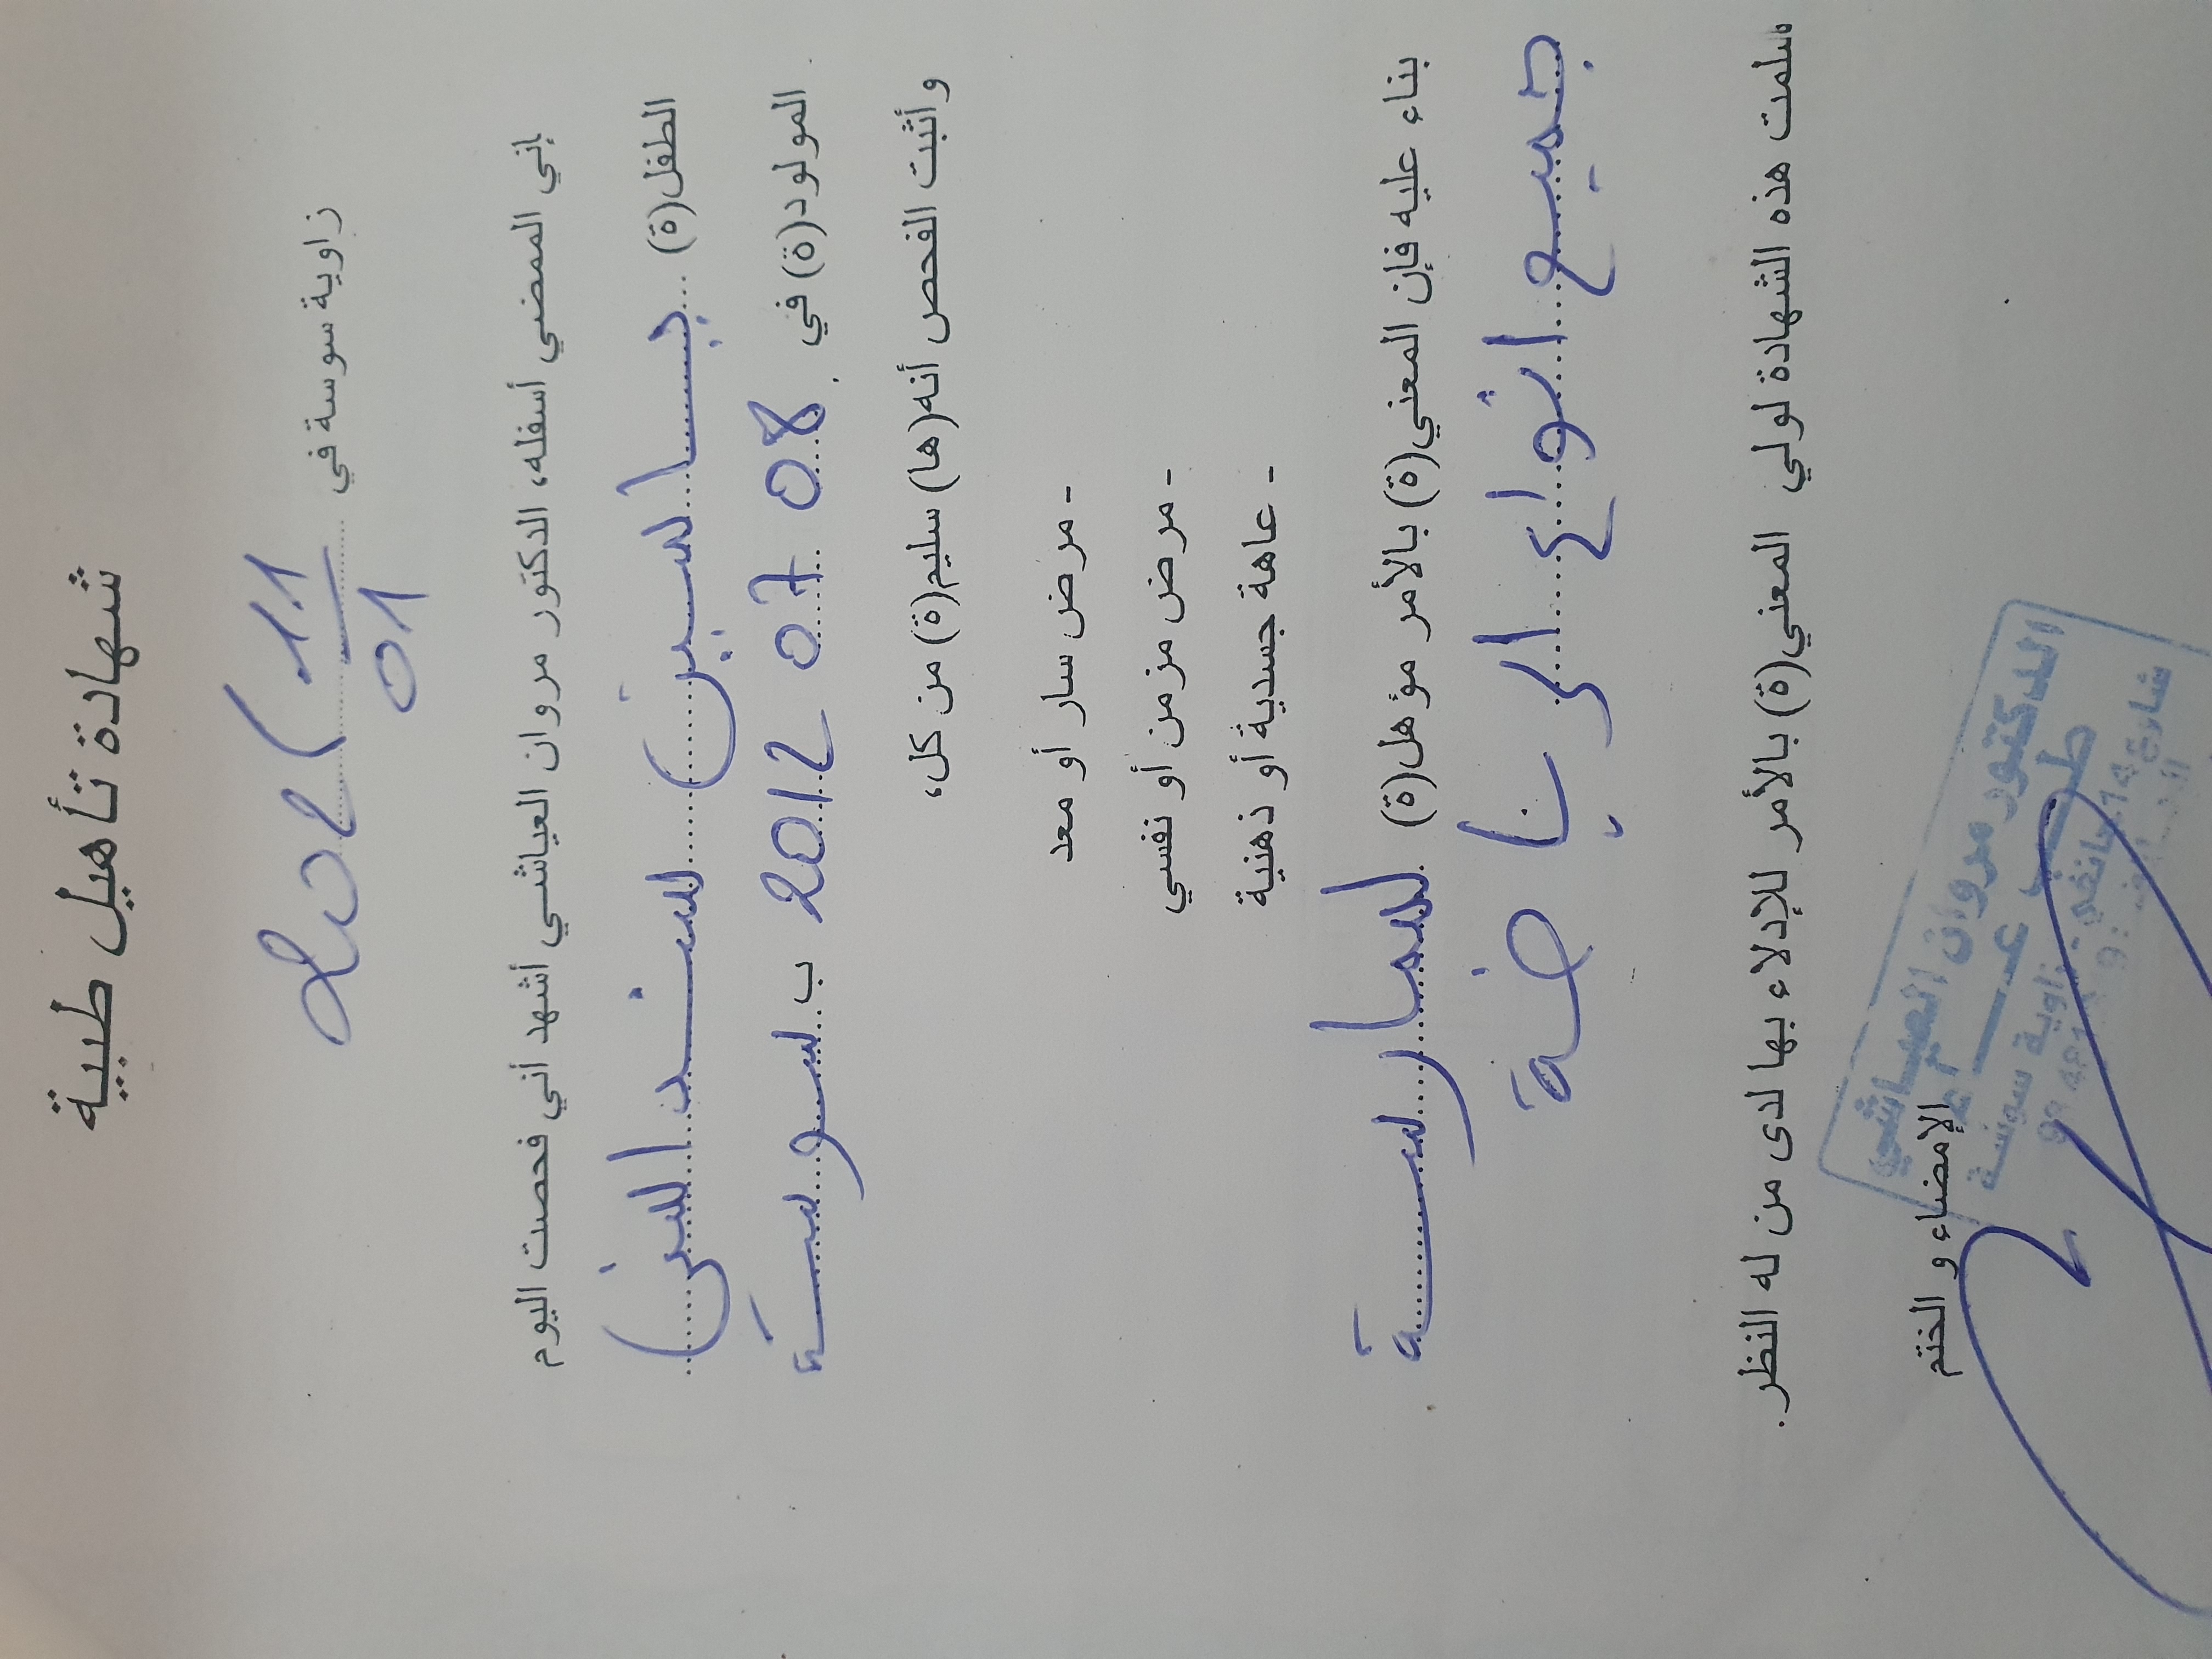 شهادة تأهيل طبية
زاوية سوسة في 11
01
إني الممضي أسفله، الدكتور مروان العياشي أشهد أني فحصت اليوم
الطفل(ة) ياسين سند الين
المولود(ة) في 08 07 2012 ب سوسة
وأثبت الفحص أنه(ها) سليم(ة) من كل،
- مرض سار أو معد
- مرض مزمن أو نفسي
- عاهة جسدية أو ذهنية
بناء عليه فإن المعني(ة) بالأمر مؤهل(ة) لممارسة
جميع انواع الرياضة
سلمت هذه الشهادة لولي المعني(ة) بالأمر للإدلاء بها لدى من له النظر.
الإمضاء و الختم
الدكتور مروان العياشي
طب عام
شارع 14 جانفي زاوية سوسة